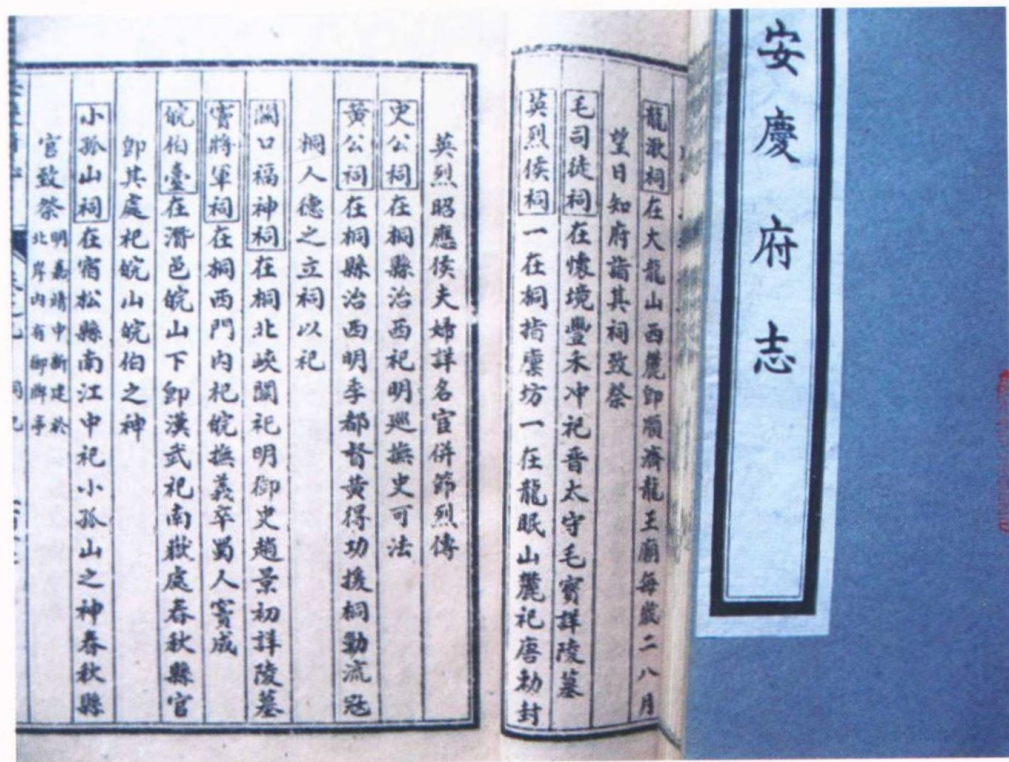 安慶府志
龍湫祠在大龍山西麓卽順濟龍王廟每歲二八月
望日知府詣其祠致祭
毛司徒祠在懷境豐禾冲祀晋太守毛寳詳陵墓
英烈侯祠一在桐指廪坊一在龍眠山麓祀唐勅封
英烈昭應侯夫婦詳名宦併節烈傳
史公祠在桐縣治西祀明廵撫史可法
黄公祠在桐縣治西明季都督黄得功援桐勦流冦
桐人德之立祠以祀
關口福神祠在桐北峽關祀明御史趙景初詳陵墓
竇將軍祠在桐西門內祀皖撫義卒蜀人竇成
皖伯臺在潛邑皖山下卽漢武祀南嶽處春秋縣官
卽其處祀皖山皖伯之神
小孤山祠在宿松縣南江中祀小孤山之神春秋縣
官致祭明嘉靖中新建於
北岸内有御牌亭